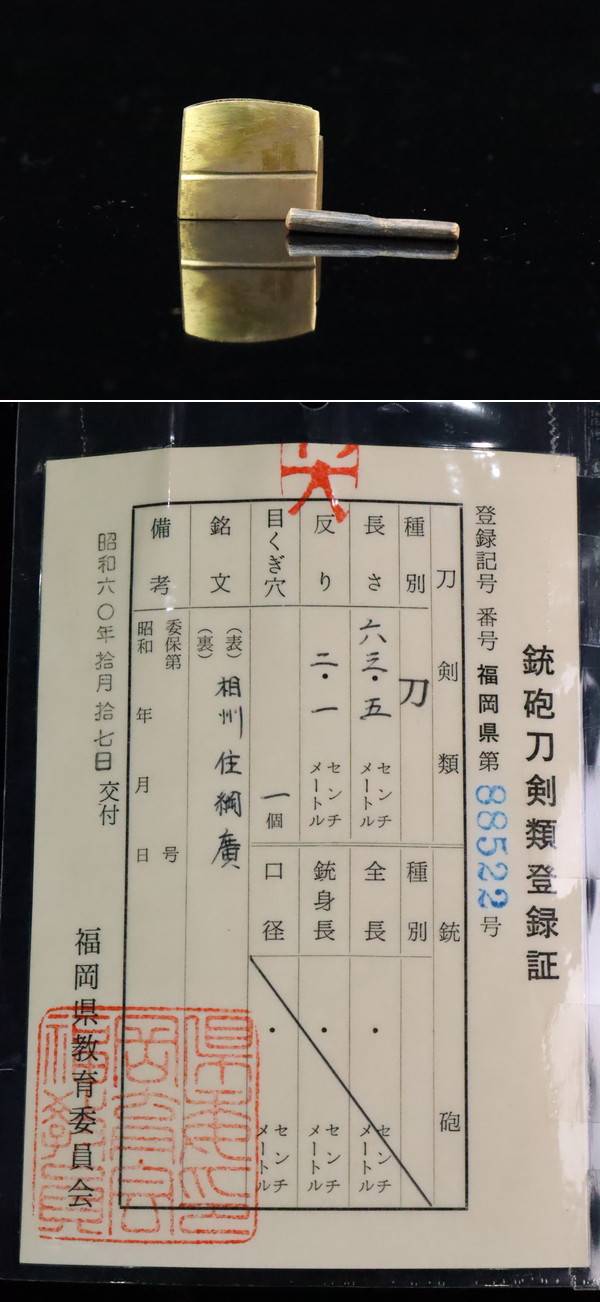 銃砲刀剣類登録証
登録記号 番号 福岡県第 88522 号
刀剣類
種別 刀
長さ 六三・五 センチメートル
反り 二・一 センチメートル
目くぎ穴 一個
銘文 (表) 相州住綱廣
(裏)
備考 委保第 号
昭和 年 月 日
銃砲
種別
全長 ・ センチメートル
銃身長 ・ センチメートル
口径 ・ センチメートル
昭和六〇年拾月拾七日 交付
福岡県教育委員会